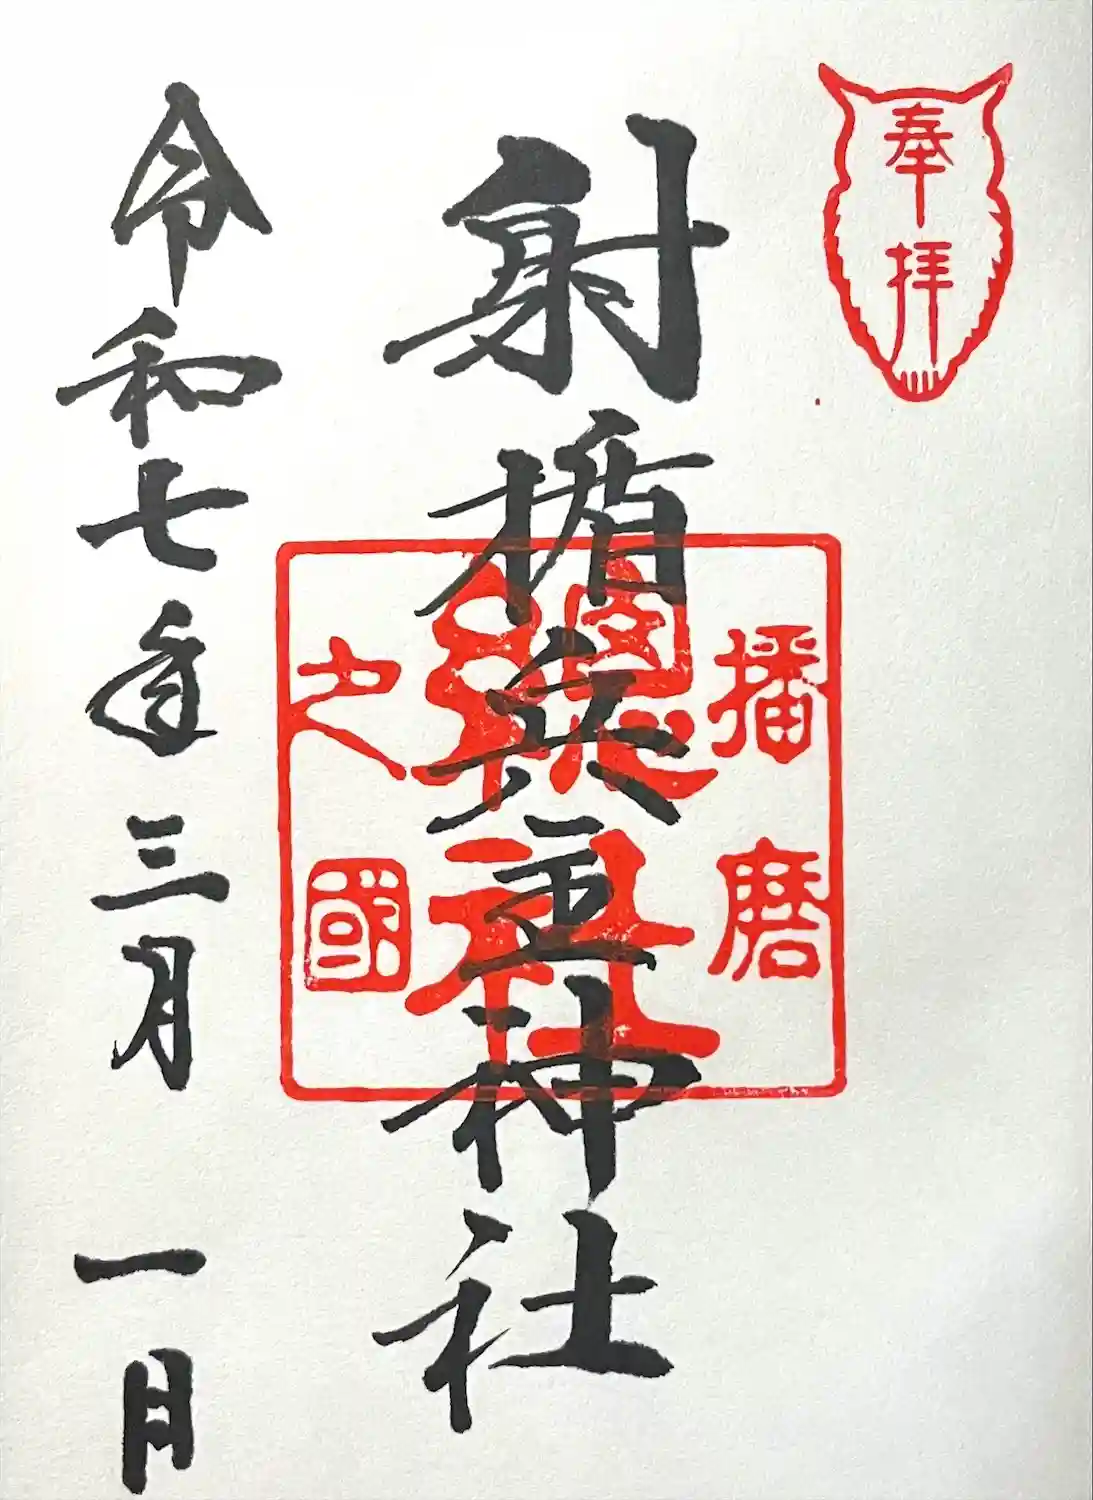 奉拝
播磨
總社
之國
射楯兵主神社
令和七年三月一日